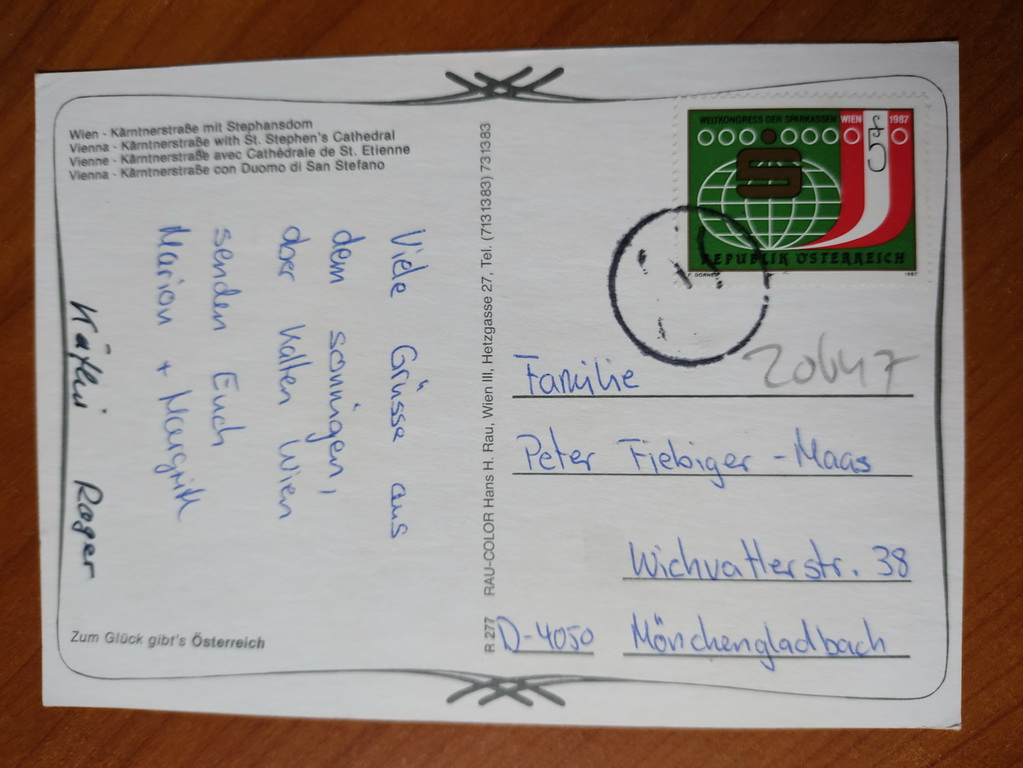 Wien - Kärntnerstraße mit Stephansdom
Vienna - Kärntnerstraße with St. Stephen's Cathedral
Vienne - Kärntnerstraße avec Cathédrale de St. Etienne
Vienna - Kärntnerstraße con Duomo di San Stefano
Viele Grüsse aus
dem sonnigen,
aber kalten Wien
senden Euch
Marion + Margritt
Käthi Roger
Zum Glück gibt's Österreich
R 277 RAU-COLOR Hans H. Rau, Wien III, Hetzgasse 27, Tel. (7131383) 731383
WELTKONGRESS DER SPARKASSEN WIEN 1987
5
REPUBLIK ÖSTERREICH
1987
20647
Familie
Peter Fiebiger - Maas
38
D-4050 Mönchengladbach